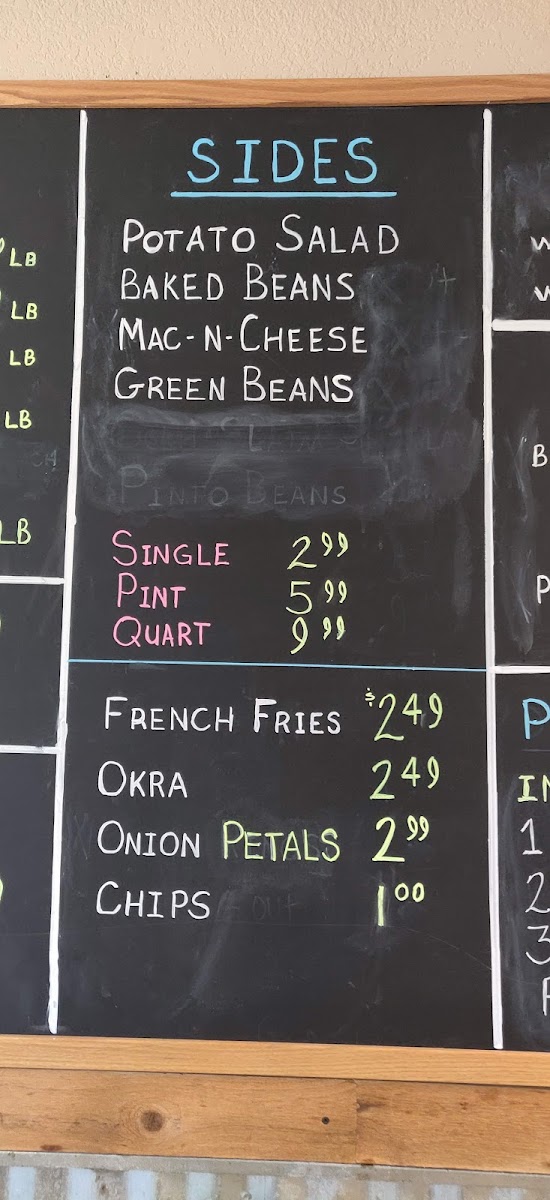 SIDES
POTATO SALAD
BAKED BEANS
MAC-N-CHEESE
GREEN BEANS
PINTO BEANS
SINGLE 2.99
PINT 5.99
QUART 9.99
FRENCH FRIES $2.49
OKRA 2.49
ONION PETALS 2.99
CHIPS 1.00
LB
LB
LB
LB
LB
B
P
P
IN
1
2
3